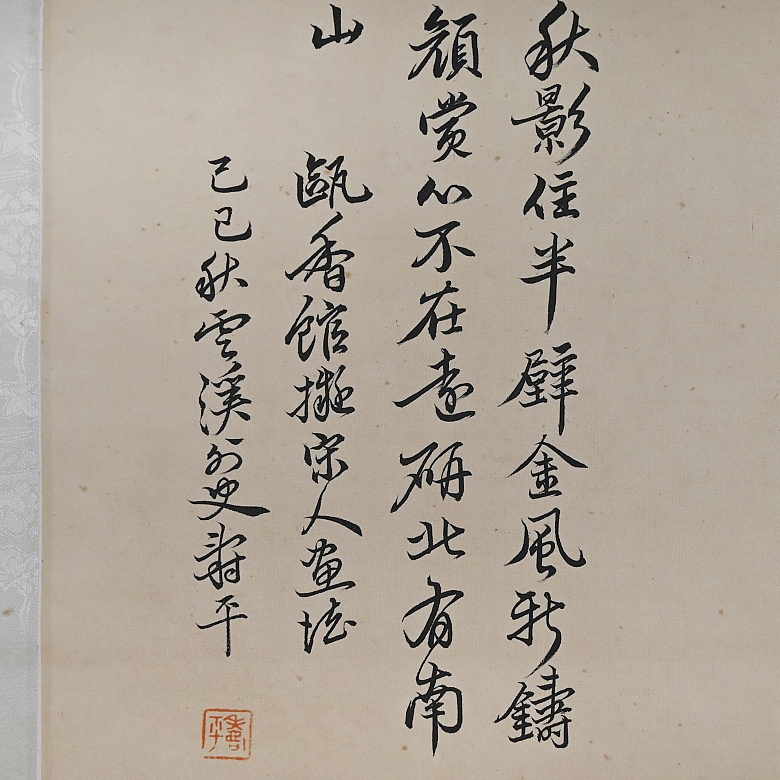 秋影住半壁金風新鑄
顏賞心不在遠研北有南
山 甌香館擬宋人畫法
己巳秋雲溪外史壽平
壽平